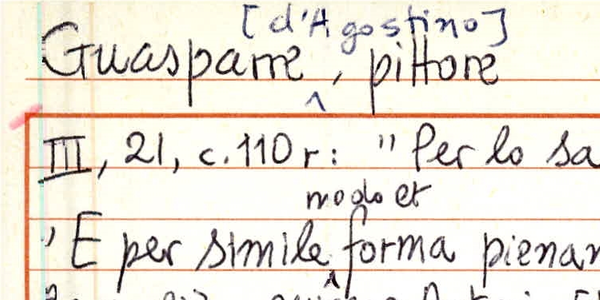 [d'Agostino]
Guasparre, pittore
III, 21, c. 110 r: "Per lo sa
modo et
'E per simile forma pienam